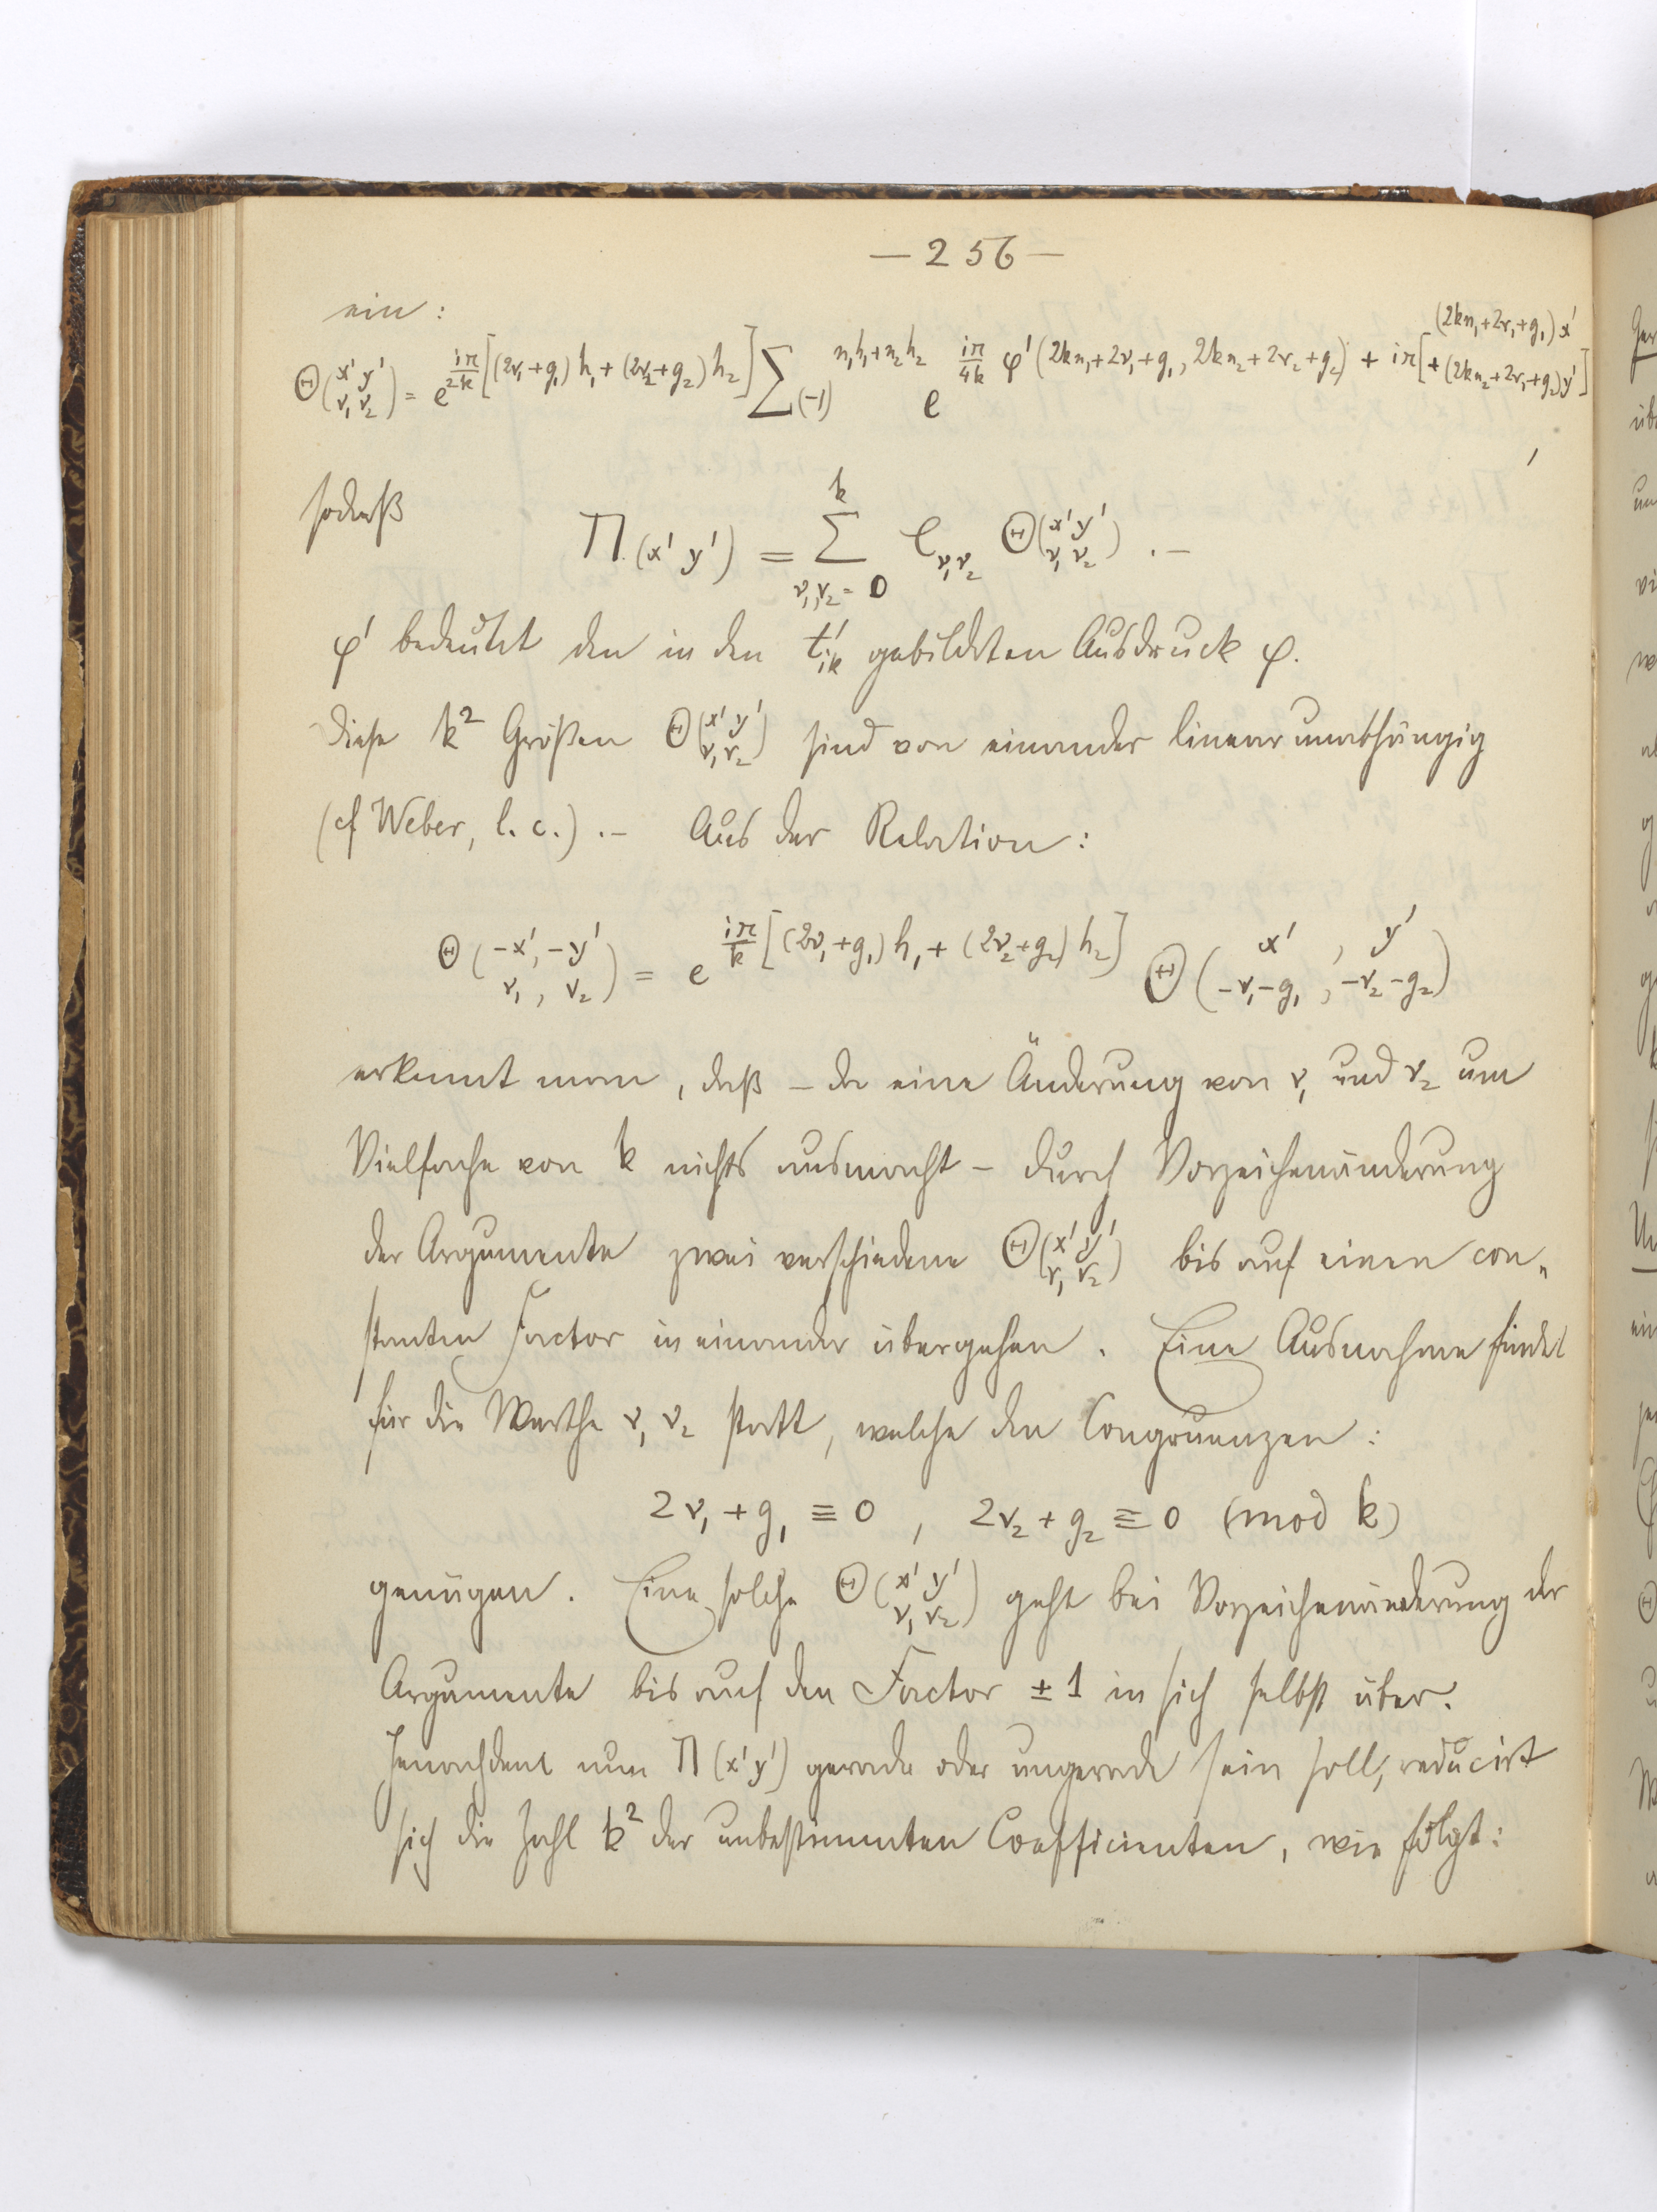 — 256 —
ein:
Θ(x' y' / ν₁ ν₂) = e^{iπ/2k [(2ν₁+g₁)h₁+(2ν₂+g₂)h₂]} ∑ (-1)^{n₁h₁+n₂h₂} e^{iπ/4k φ'(2kn₁+2ν₁+g₁, 2kn₂+2ν₂+g₂) + iπ[(2kn₁+2ν₁+g₁)x' + (2kn₂+2ν₂+g₂)y']},
sodaß
Π(x' y') = ∑_{ν₁,ν₂=0}^{k} C_{ν₁ν₂} Θ(x' y' / ν₁ ν₂) . —
φ' bedeutet den in den t'ᵢₖ gebildeten Ausdruck φ.
Diese k² Größen Θ(x' y' / ν₁ ν₂) sind von einander linear unabhängig
(cf Weber, l. c.) . — Aus der Relation:
Θ(-x', -y' / ν₁, ν₂) = e^{iπ/k [(2ν₁+g₁)h₁+(2ν₂+g₂)h₂]} Θ(x', y' / -ν₁-g₁, -ν₂-g₂)
erkennt man, daß – da eine Änderung von ν₁ und ν₂ um
Vielfache von k nichts ausmacht – durch Vorzeichenänderung
der Argumente zwei verschiedene Θ(x' y' / ν₁ ν₂) bis auf einen con-
stanten Factor in einander übergehen. Eine Ausnahme findet
für die Werthe ν₁ ν₂ statt, welche den Congruenzen:
2ν₁ + g₁ ≡ 0 , 2ν₂ + g₂ ≡ 0 (mod k)
genügen. Eine solche Θ(x' y' / ν₁ ν₂) geht bei Vorzeichenänderung der
Argumente bis auf den Factor ± 1 in sich selbst über.
Jenachdem nun Π(x' y') gerade oder ungerade sein soll, reducirt
sich die Zahl k² der unbestimmten Coefficienten, wie folgt: